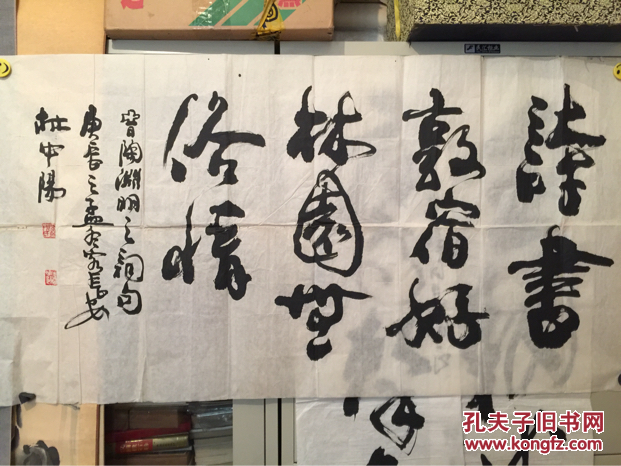 詩書
敦宿好
林園無
俗情
晉陶淵明之詞句
庚辰之孟冬客長安
杜中陽
孔夫子旧书网
www.kongfz.com